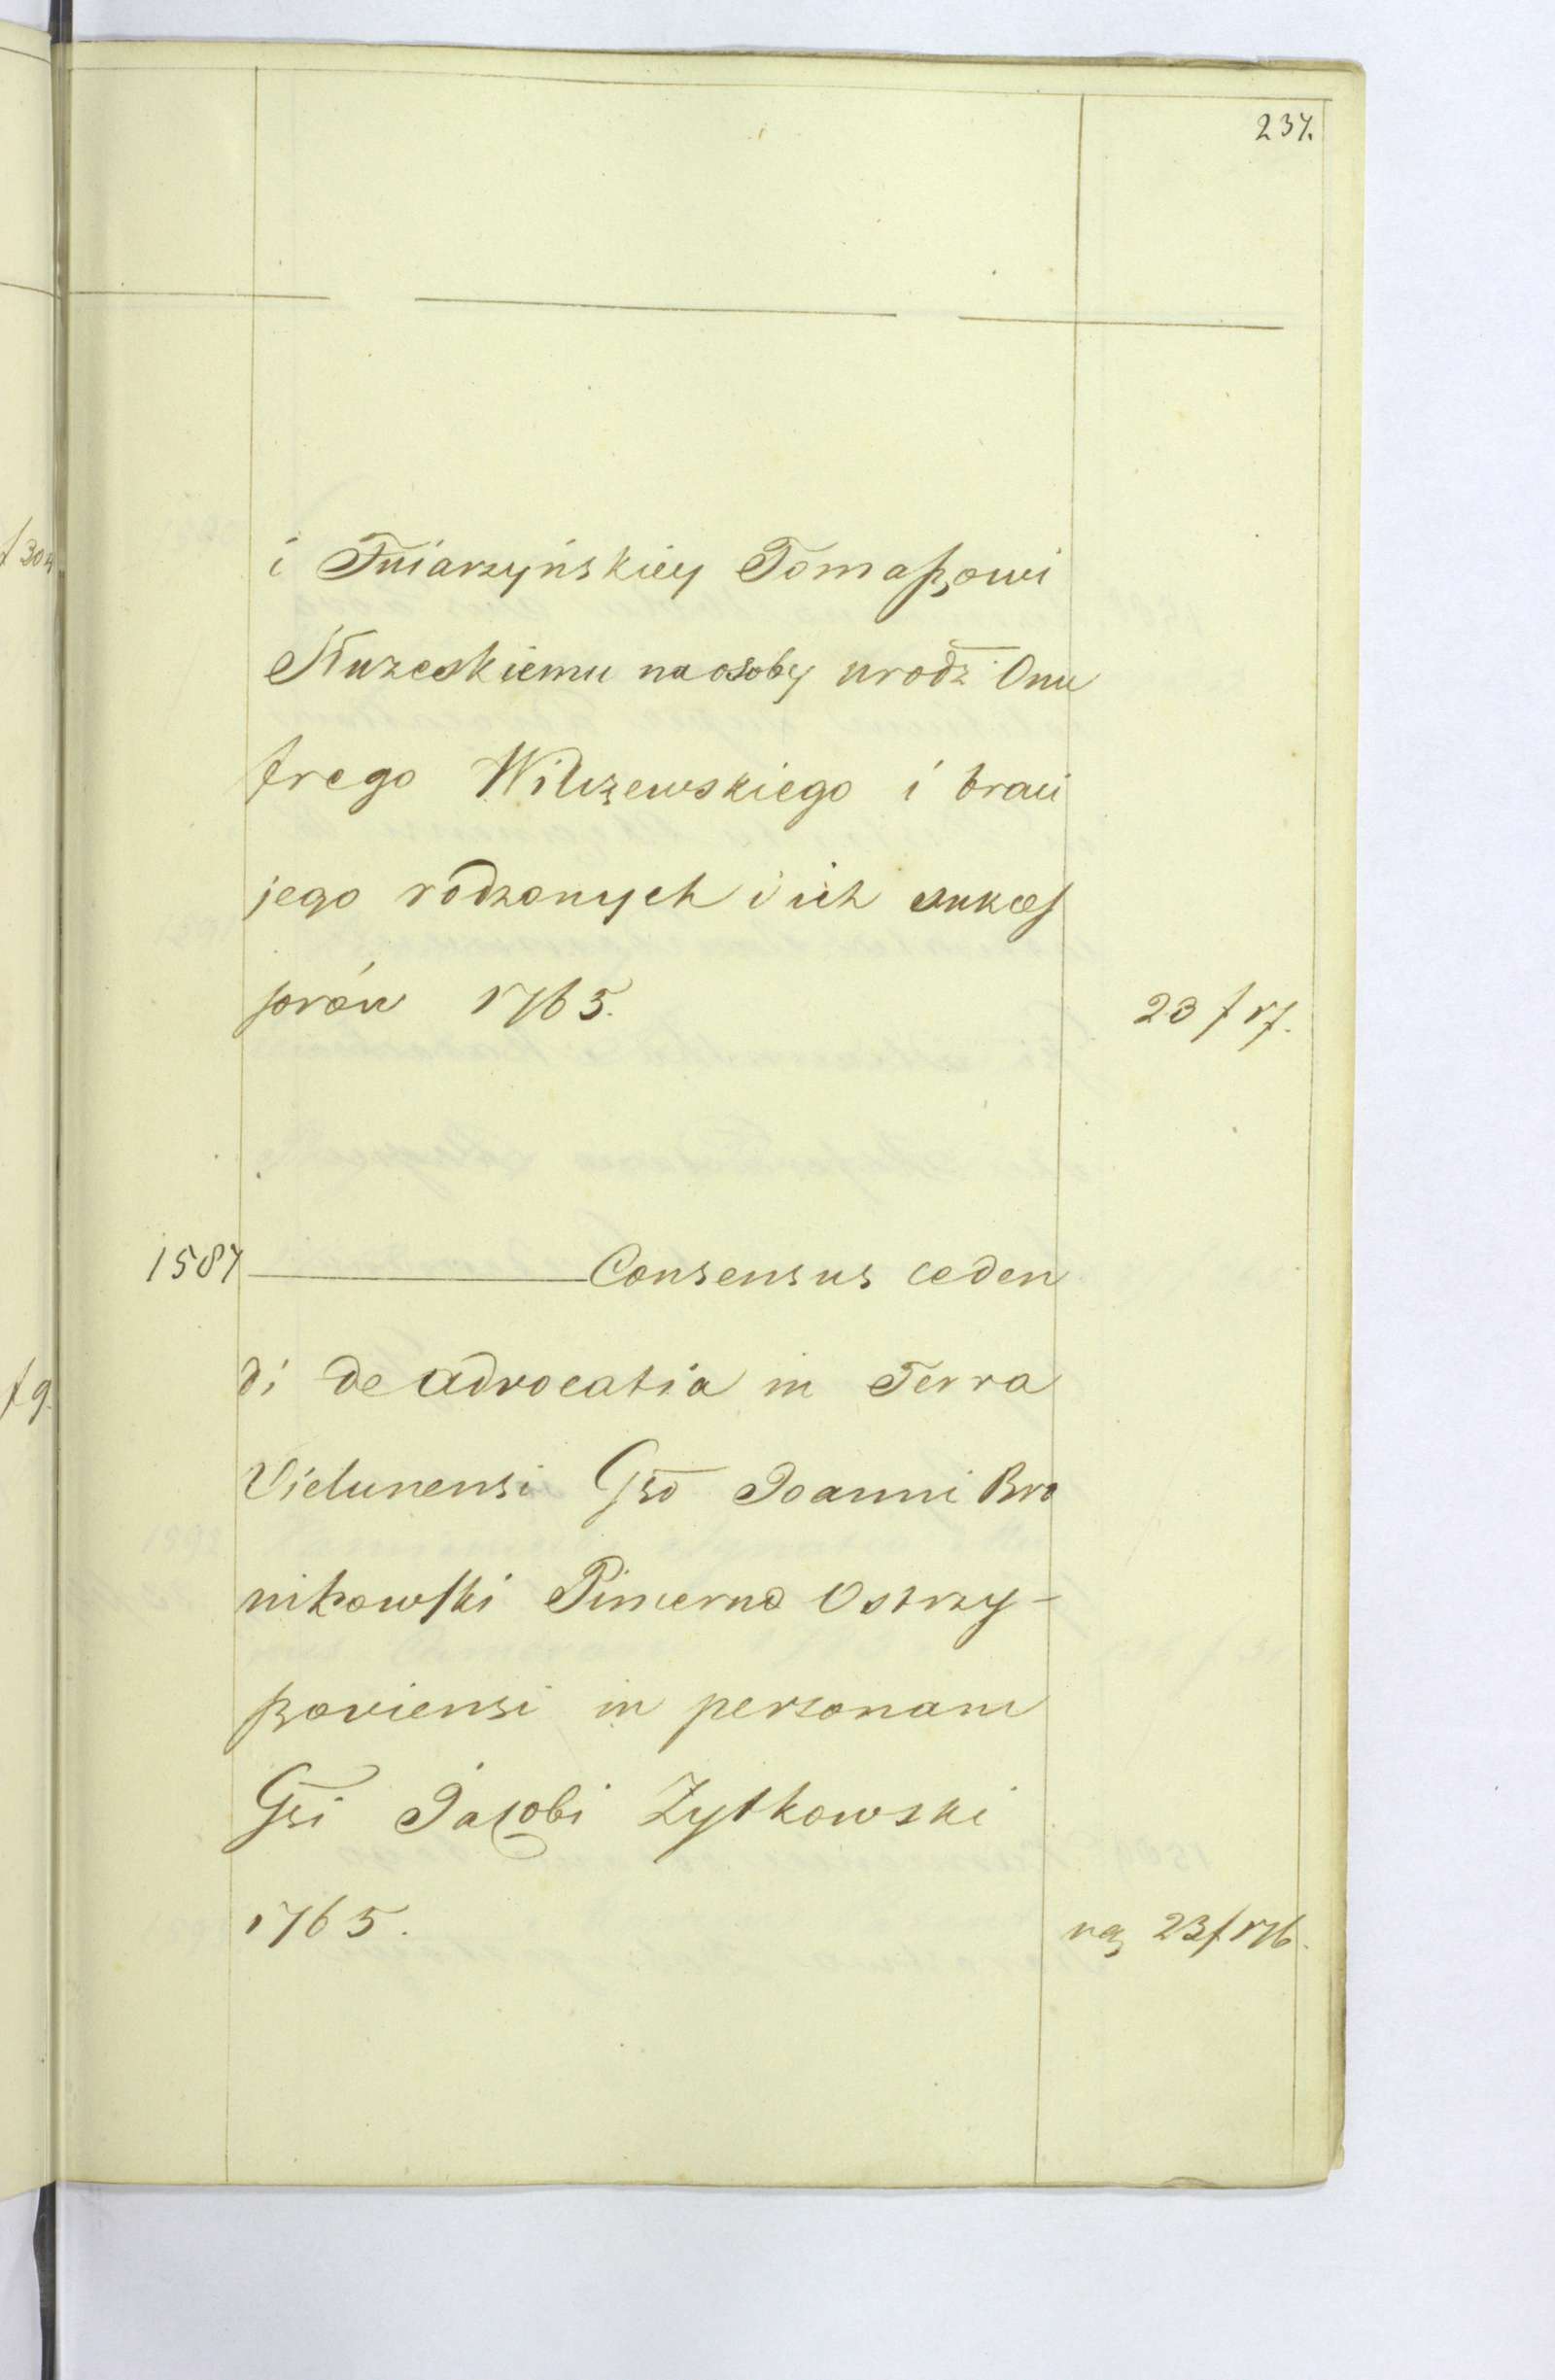 237.
f 304
i Fuiarzyńskiey Tomaszowi
Kuzeskiemu na osoby urodz Onu
frego Wilczewskiego i braci
jego rodzonych i ich sukces
sorów 1765.
23 f 17.
1587 Consensus ceden
f 9.
di de advocatia in Terra
Vielunensi Gso Joanni Bro
nikowski Pincerna Ostrzy-
szoviensi in personam
Gsi Jacobi Zytkowski
1765.
23 f 176.